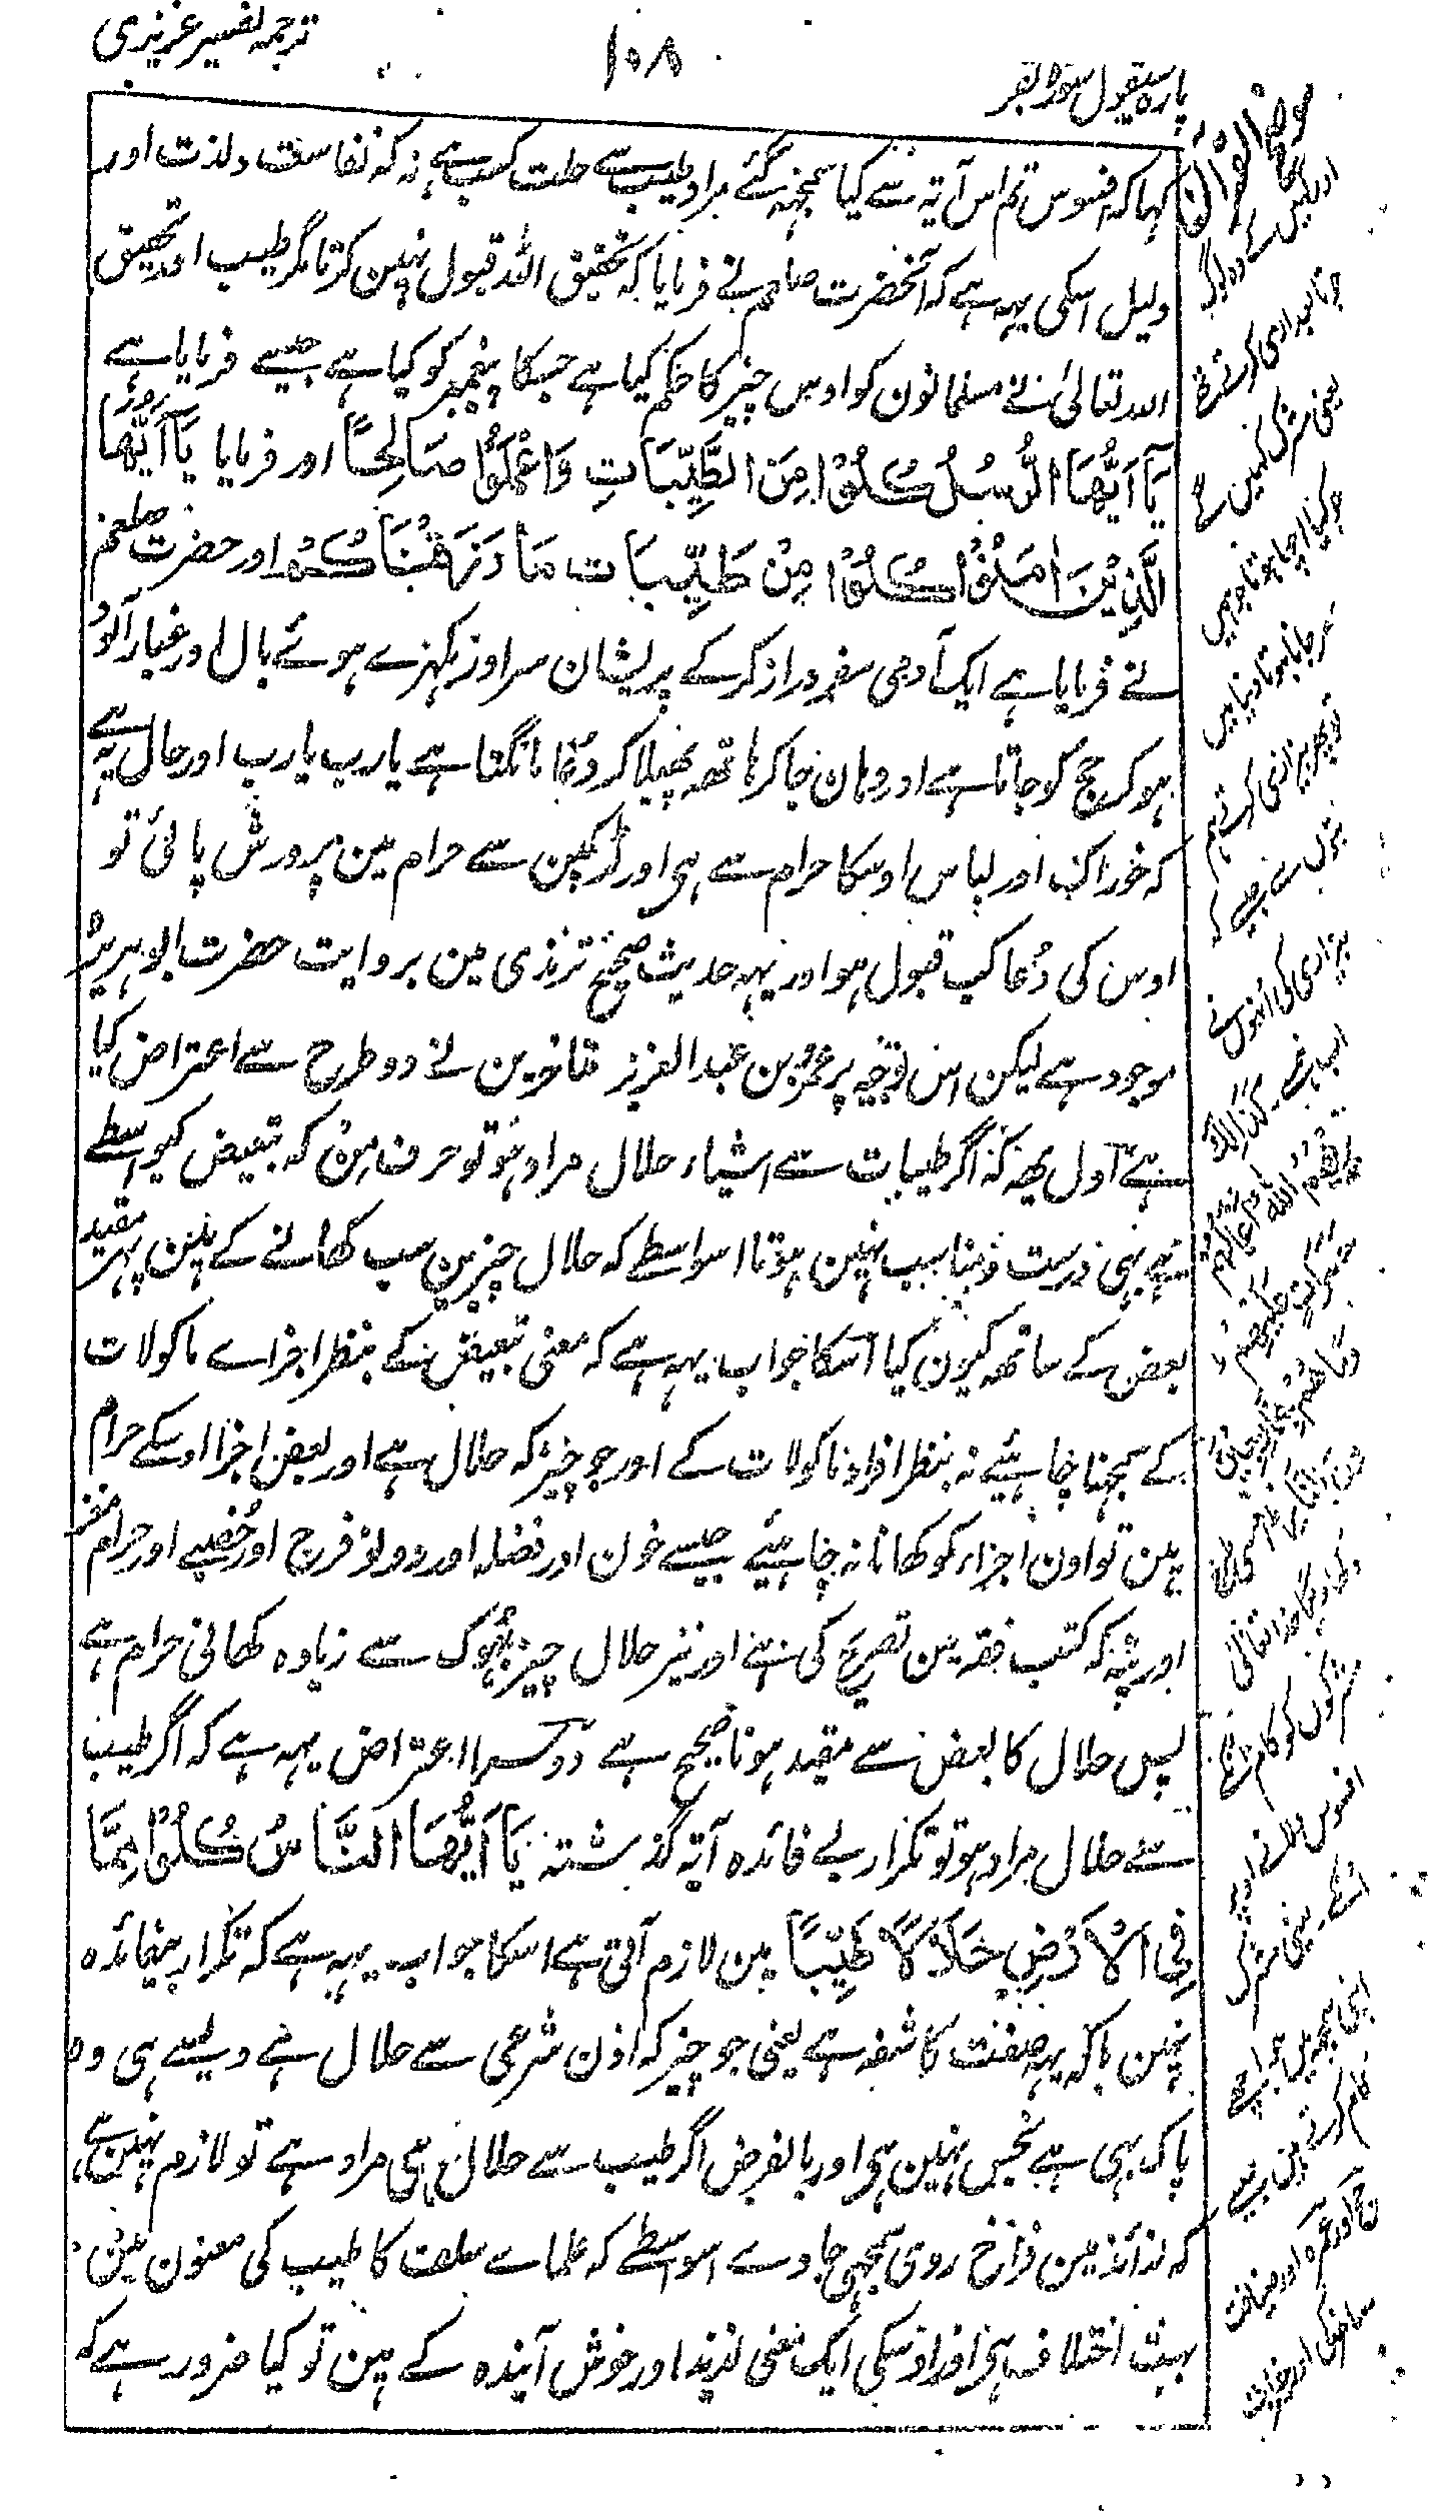 ترجمہ تفسیر عزیزی
۱۰۸
پارہ سیقول سورہ بقر
کہا کہ افسوس تم اس آیتہ سے کیا سمجہہ گئے مراد طیب سے حلت کسب ہے نہ کہ نفاست و لذت اور
دلیل اسکی یہہ ہے کہ آنحضرت صلعم نے فرمایا کہ تحقیق اللہ قبول نہین کرتا مگر طیب اور تحقیق
اللہ تعالیٰ نے مسلمانون کو اوس چیز کا حکم کیا ہے جسکا پیغمبر کو کیا ہے جیسے فرمایا ہے
يَا أَيُّهَا الرُّسُلُ كُلُوْا مِنَ الطَّيِّبَاتِ وَاعْمَلُوْا صَالِحًا اور فرمایا يَا أَيُّهَا
الَّذِيْنَ اٰمَنُوْا كُلُوْا مِنْ طَيِّبَاتِ مَا رَزَقْنَاكُمْ اور حضرت صلعم
نے فرمایا ہے ایک آدمی سفر دراز کرکے پریشان سر اور بکہرے ہوئے بال اور غبار آلودہ
ہو کر حج کو جاتا ہے اور وہان جا کر ہاتھہ پھیلا کر دُعا مانگتا ہے یارب یارب اور حال یہ ہے
کہ خوراک اور لباس اوسکا حرام سے ہی اور لڑکپن سے حرام مین پرورش پائی تو
اوس کی دُعا کب قبول ہو اور یہہ حدیث صحیح ترمذی مین بروایت حضرت ابو ہریرہ
موجود ہے لیکن اس توجیہ پر عمر بن عبد العزیز متاخرین نے دو طرح سے اعتراض کیا
ہے اول یہہ کہ اگر طیبات سے اشیاء حلال مراد ہو تو حرف مِنْ کہ تبعیض کیواسطے
ہے یہی درست و مناسب نہین ہوتا اسواسطے کہ حلال چیزین سب کھانے کے ہین پہر مقید
بعض کے ساتھ کیون کیا اسکا جواب یہہ ہے کہ معنی تبعیض کے بنظر اجزاے ماکولات
کے سمجہنا چاہئیے نہ بنظر افراد ماکولات کے اور جو چیز کہ حلال ہے اور بعض اجزا اوسکے حرام
ہین تو اون اجزاء کو کھانا نہ چاہئیے جیسے خون اور فضلہ اور دونو فرج اور خُصیے اور حرام مغز
اور پتہ کہ کتب فقہ مین تصریح کی ہے اور نیز حلال چیز بُہوک سے زیادہ کھانی حرام ہے
پس حلال کا بعض سے مقید ہونا صحیح ہے دوسرا اعتراض یہہ ہے کہ اگر طیب
سے حلال مراد ہو تو تکرار بے فائدہ آیہ گذشتہ يَا أَيُّهَا النَّاسُ كُلُوْا مِمَّا
فِي الْاَرْضِ حَلَالًا طَيِّبًا مین لازم آتی ہے اسکا جواب یہہ ہے کہ تکرار بیفائدہ
نہین بلکہ یہہ صفت کاشفہ ہے یعنی جو چیز کہ اذن شرعی سے حلال ہے ویسے ہی وہ
پاک بہی ہے نجس نہین ہی اور بالفرض اگر طیب سے حلال ہی مراد ہے تو لازم نہین ہے
کہ لذائذ مین فراخ روی سمجہی جاوے اسواسطے کہ علماے سلف کا طیب کی معنون مین
بہت اختلاف ہی اور اوسکی ایک معنی لذیذ اور خوش آیندہ کے ہین تو کیا ضرور ہے کہ
موضح القرآن
اور کہین گے وہ لوگ
جو تابعداری کرتے تھے
یعنی مشرک کہین گے
کہ کیا اچہا ہوتا جو ہمین
پھر جانا ہوتا دنیا مین
بیزاری کی اُنہون نے
كَذَالِكَ
يُرِيْهِمُ اللّٰهُ اَعْمَالَهُمْ
حَسَرَاتٍ عَلَيْهِمْ
وَمَا هُمْ بِخَارِجِيْنَ
مِنَ النَّارِ
دکھاویگا خدا تعالیٰ
مشرکون کو کام
افسوس دلانے